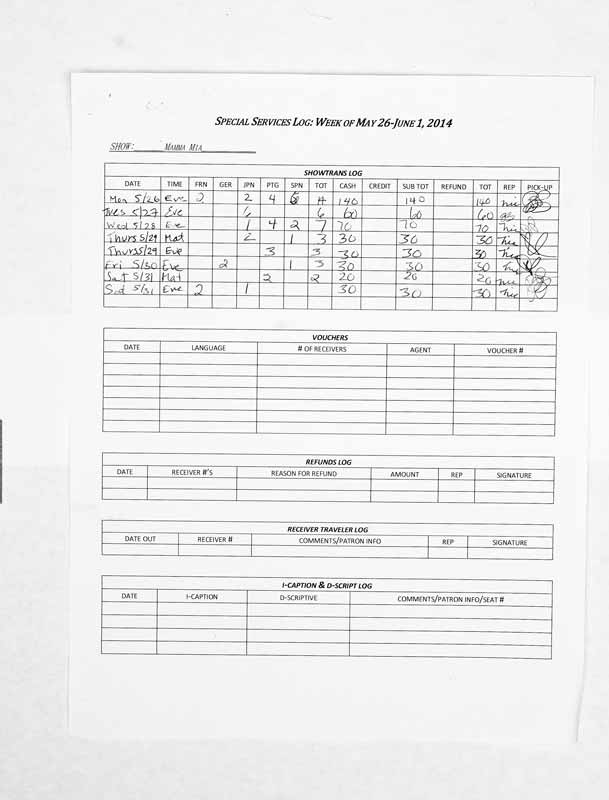 SPECIAL SERVICES LOG: WEEK OF MAY 26-JUNE 1, 2014
SHOW: MAMMA MIA
SHOWTRANS LOG
DATE TIME FRN GER JPN PTG SPN TOT CASH CREDIT SUB TOT REFUND TOT REP PICK-UP
Mon 5/26 Eve 2 2 4 140 140 140 hic
Tues 5/27 Eve 6 6 60 60 60
Wed 5/28 Eve 1 4 2 7 70 70 70 hic
Thurs 5/29 Mat 2 1 3 30 30 30 hic
Thurs 5/29 Eve 3 3 30 30 30 hic
Fri 5/30 Eve 2 1 3 30 30 30 hic
Sat 5/31 Mat 2 2 20 20 20 hic
Sat 5/31 Eve 2 1 30 30 30 hic
VOUCHERS
DATE LANGUAGE # OF RECEIVERS AGENT VOUCHER #
REFUNDS LOG
DATE RECEIVER #'S REASON FOR REFUND AMOUNT REP SIGNATURE
RECEIVER TRAVELER LOG
DATE OUT RECEIVER # COMMENTS/PATRON INFO REP SIGNATURE
I-CAPTION & D-SCRIPT LOG
DATE I-CAPTION D-SCRIPTIVE COMMENTS/PATRON INFO/SEAT #